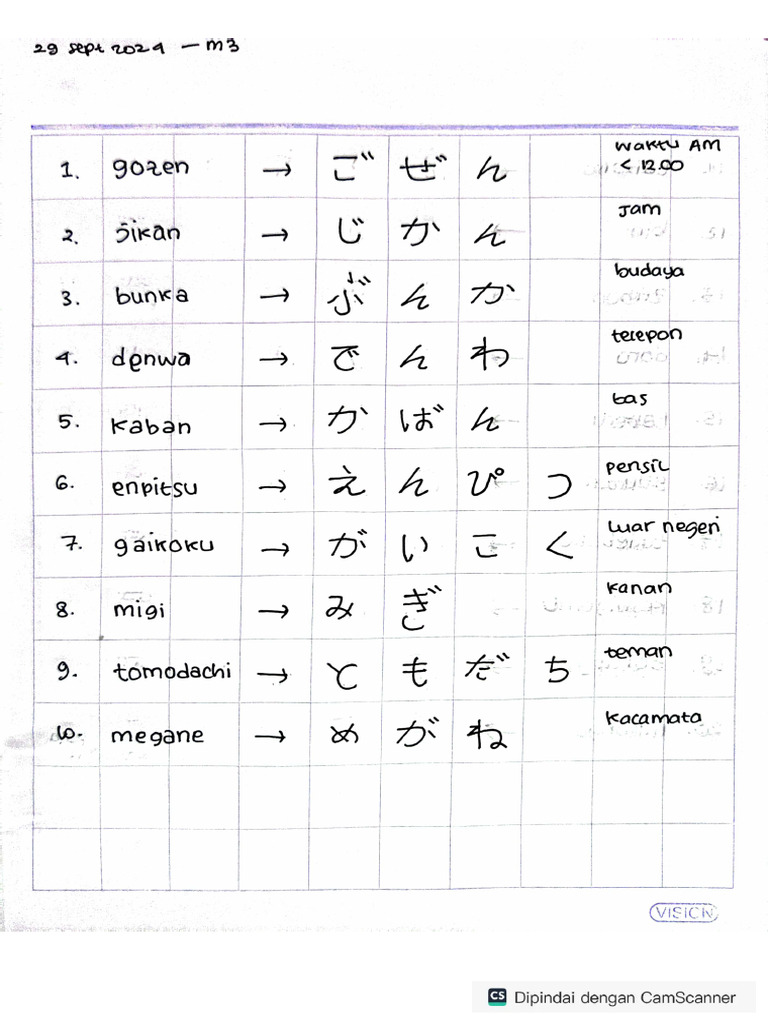 29 sept 2024 — M3
1. gozen → ごぜん waktu AM < 12.00
2. jikan → じかん Jam
3. bunka → ぶんか budaya
4. denwa → でんわ telepon
5. kaban → かばん tas
6. enpitsu → えんぴつ pensil
7. gaikoku → がいこく luar negeri
8. migi → みぎ kanan
9. tomodachi → ともだち teman
10. megane → めがね kacamata
VISION
CS Dipindai dengan CamScanner